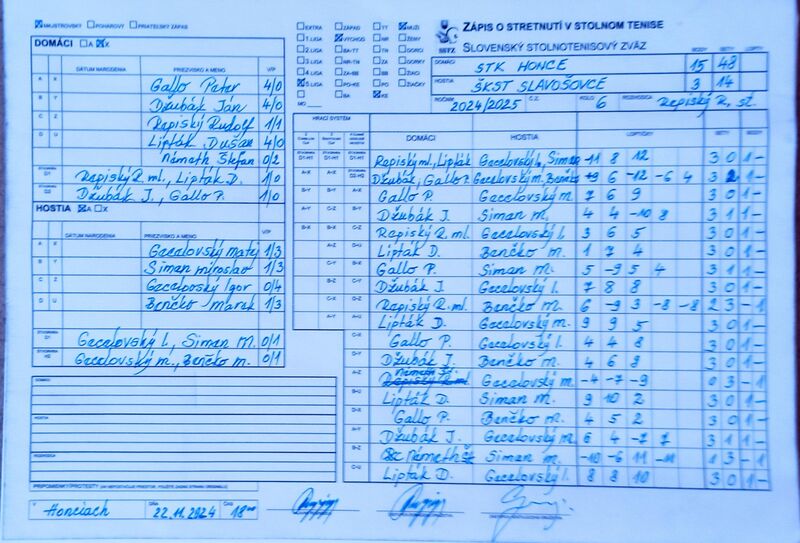 MAJSTROVSKÝ POHÁROVÝ PRIATEĽSKÝ ZÁPAS
DOMÁCI A X
DÁTUM NARODENIA PRIEZVISKO A MENO V/P
A X Gallo Peter 4/0
B Y Džubák Ján 4/0
C Z Repiský Rudolf 1/1
D U Lipták Dušan 4/0
Németh Štefan 0/2
D1 Repiský R. ml., Lipták D. 1/0
D2 Džubák J., Gallo P. 1/0
HOSTIA A X
DÁTUM NARODENIA PRIEZVISKO A MENO V/P
A X Gecelovský Matej 1/3
B Y Siman Miroslav 1/3
C Z Gecelovský Igor 0/4
D U Benčko Marek 1/3
Gecelovský I., Siman M. 0/1
Gecelovský M., Benčko M. 0/1
DOMÁCI
HOSTIA
ROZHODCA
V Honciach DŇA 22.11.2024 ČAS 18⁰⁰
EXTRA ZÁPAD TT MUŽI
1. LIGA VÝCHOD NR ŽENY
2. LIGA BA/TT TN DORCI
3. LIGA DORKY
4. LIGA ZA/BB BB ŽIACI
5. LIGA PO/KE PO ŽIAČKY
BA KE
MO
SSTZ
ZÁPIS O STRETNUTÍ V STOLNOM TENISE
SLOVENSKÝ STOLNOTENISOVÝ ZVÄZ
BODY SETY LOPTY
DOMÁCI STK HONCE 15 48
HOSTIA ŠKST SLAVOŠOVCE 3 14
ROČNÍK 2024/2025 Č.Z. KOLO 6 ROZHODCA Repiský R. st.
HRACÍ SYSTÉM
DOMÁCI HOSTIA LOPTIČKY SETY BODY
Repiský ml., Lipták Gecelovský I., Siman 11 8 12 3 0 1 -
Džubák, Gallo P. Gecelovský M., Benčko 6 -12 -6 4 3 2 1 -
Gallo P. Gecelovský M. 7 6 9 3 0 1 -
Džubák J. Siman M. 4 4 -10 8 3 1 1 -
Repiský R. ml. Gecelovský I. 3 6 5 3 0 1 -
Lipták D. Benčko M. 1 7 4 3 0 1 -
Gallo P. Siman M. 5 -9 5 4 3 1 1 -
Džubák J. Gecelovský I. 7 8 8 3 0 1 -
Repiský R. ml. Benčko M. 6 -9 3 -8 -8 2 3 - 1
Lipták D. Gecelovský M. 9 9 5 3 0 1 -
Gallo P. Gecelovský I. 4 4 8 3 0 1 -
Džubák J. Benčko M. 4 6 8 3 0 1 -
Németh Št. Gecelovský M. -4 -7 -9 0 3 - 1
Lipták D. Siman M. 9 10 2 3 0 1 -
Gallo P. Benčko M. 4 5 2 3 0 1 -
Džubák J. Gecelovský M. 6 4 -7 7 3 1 1 -
Németh Št. Siman M. -10 -6 11 -11 1 3 - 1
Lipták D. Gecelovský I. 8 8 10 3 0 1 -